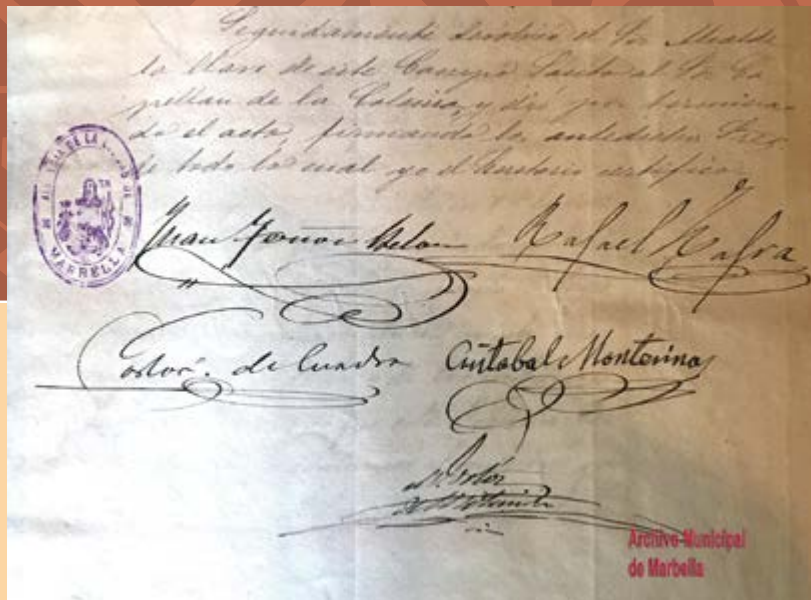 Seguidamente devolvió el Sr. Alcalde
la llave de este Campo Santo al Sr. Ca
pellan de la Colonia, y dió por termina
do el acto, firmando los antedichos Sres.
de todo lo cual yo el Secretario certifico.
ALCALDIA DE LA CIUDAD DE
MARBELLA
Juan Rafael Nafra
de Cuadra Cristobal Montesinos
Archivo Municipal
de Marbella